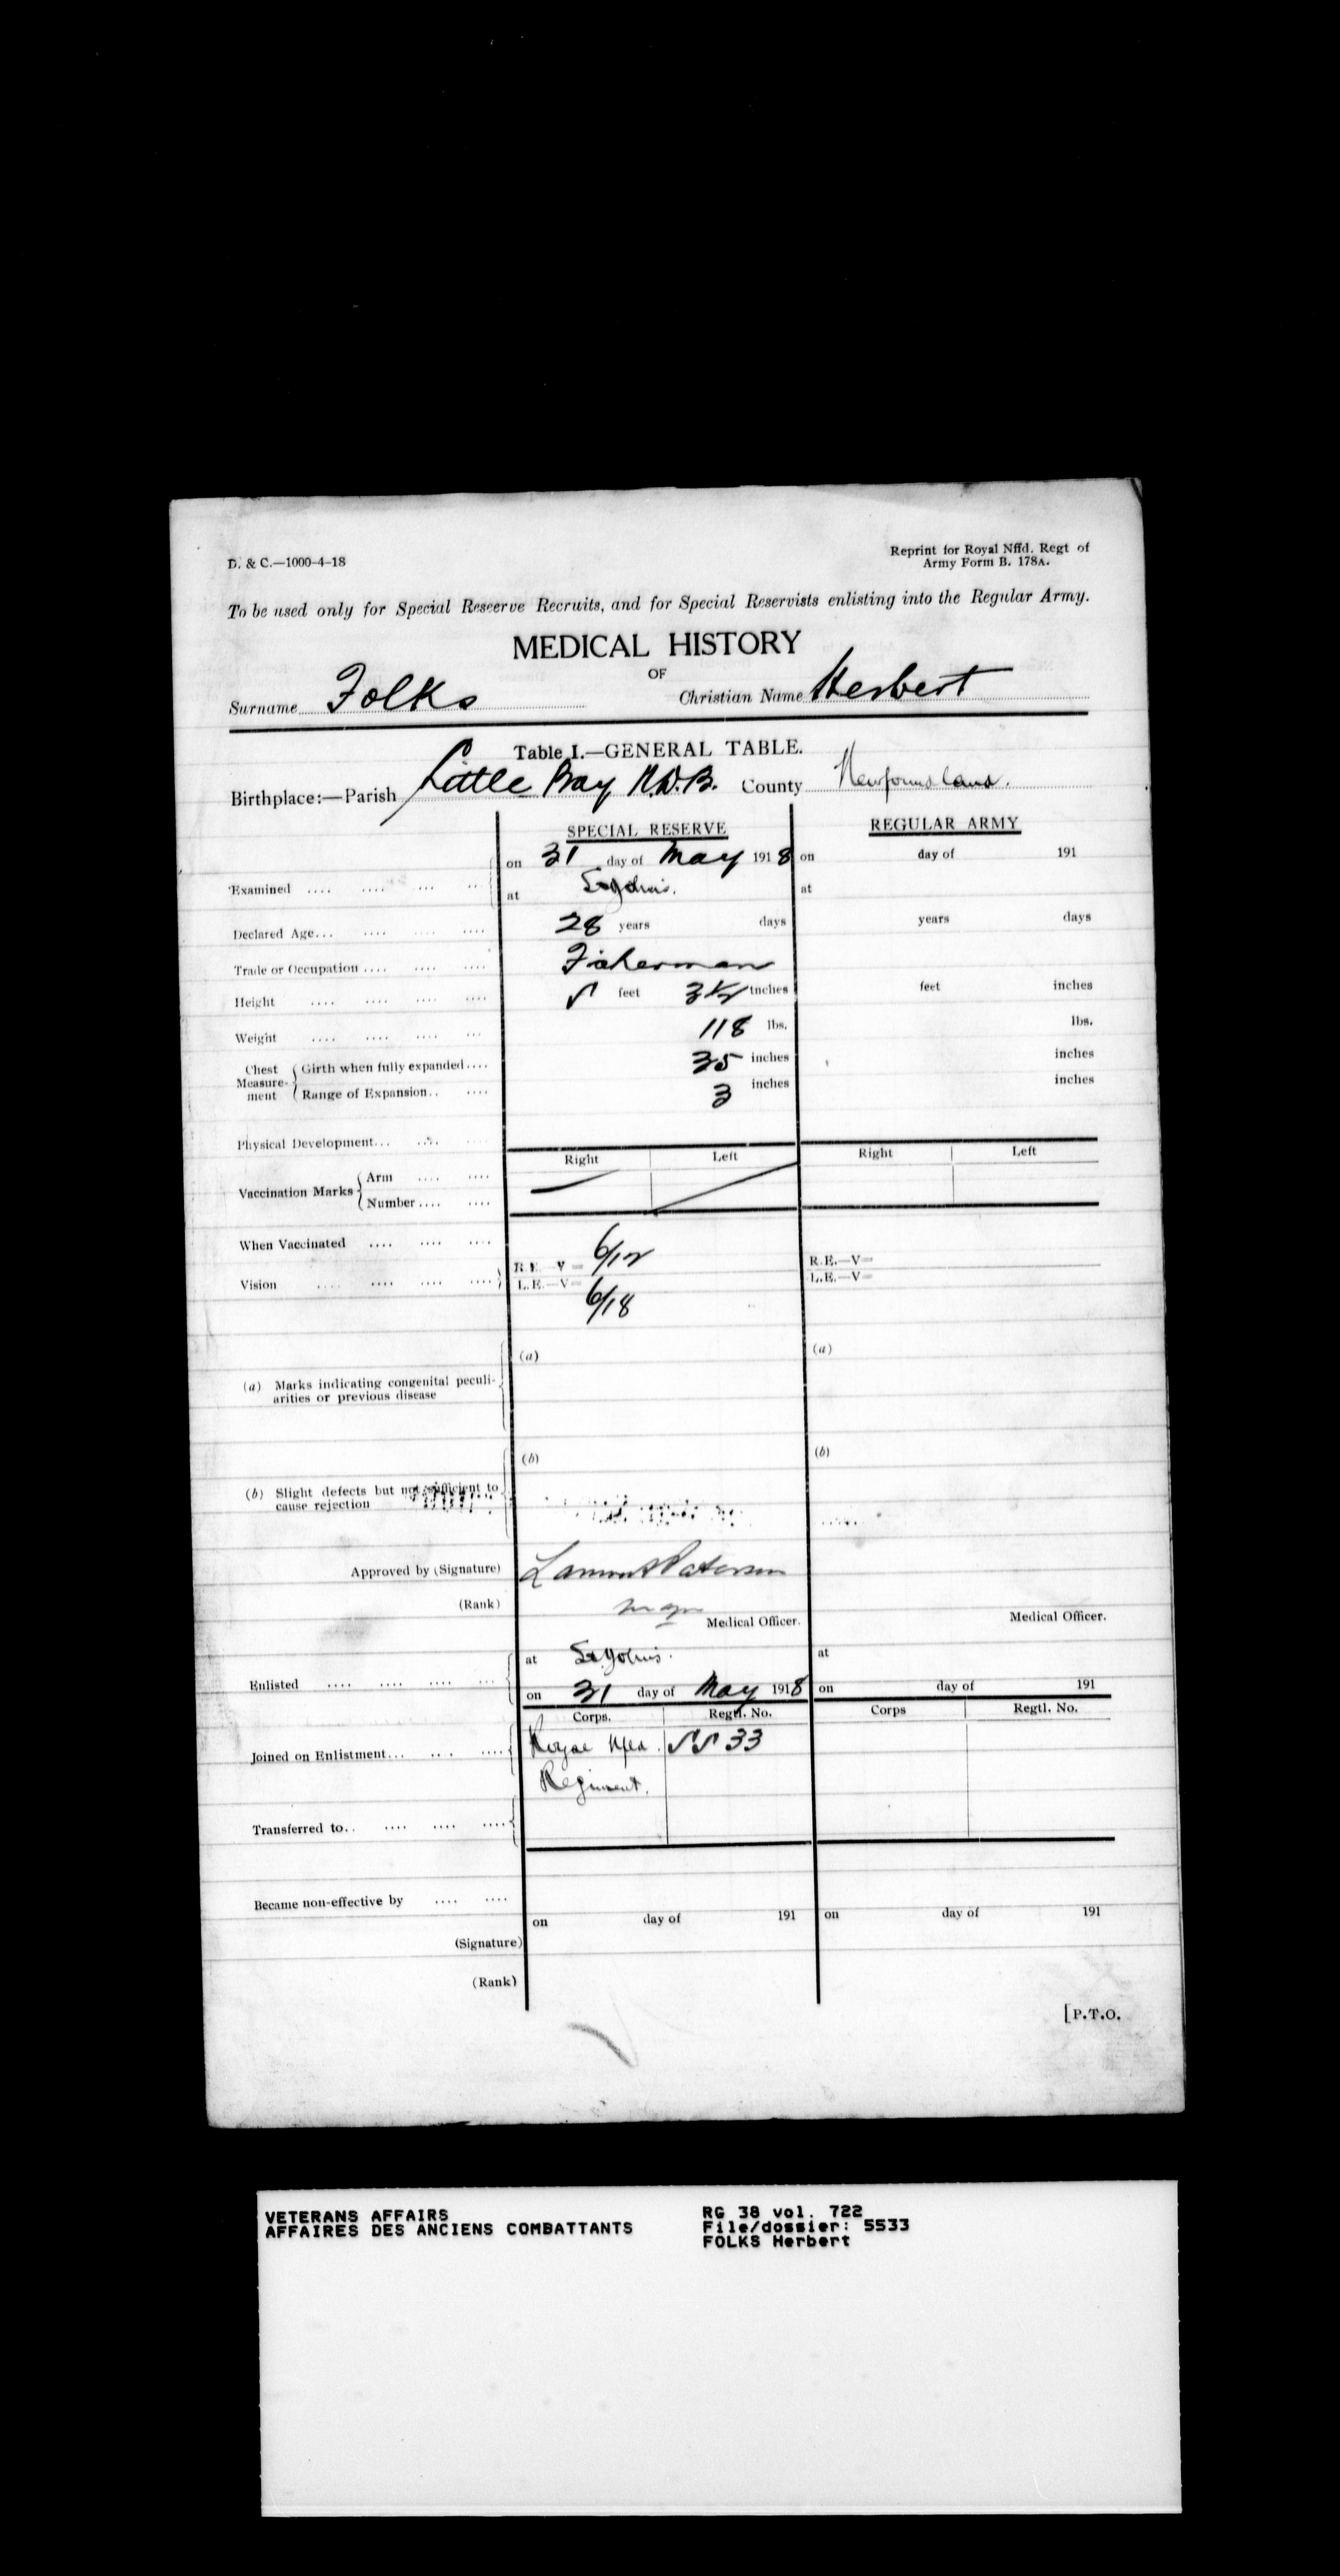 D. & C.—1000-4-18
Reprint for Royal Nffd. Regt of
Army Form B. 178A.
To be used only for Special Reserve Recruits, and for Special Reservists enlisting into the Regular Army.
MEDICAL HISTORY
OF
Surname Folks Christian Name Herbert
Table I.—GENERAL TABLE.
Birthplace:—Parish Little Bay N.D.B. County Newfoundland.
SPECIAL RESERVE REGULAR ARMY
on 31 day of May 1918 on day of 191
Examined .... .... .... ...
at St Johns. at
Declared Age... .... .... .... 28 years days years days
Trade or Occupation .... .... .... Fisherman
Height .... .... .... .... 5 feet 3½ inches feet inches
Weight .... .... .... ... 118 lbs. lbs.
Chest Measure-ment { Girth when fully expanded.... 35 inches inches
{ Range of Expansion.. .... 3 inches inches
Physical Development... .... ....
Right Left Right Left
Vaccination Marks { Arm .... ....
{ Number .... ....
When Vaccinated .... .... ....
Vision .... .... .... .... R.E.—V= 6/12 R.E.—V=
L.E.—V= 6/18 L.E.—V=
(a) (a)
(a) Marks indicating congenital peculi-
arities or previous disease
(b) (b)
(b) Slight defects but not sufficient to
cause rejection
Approved by (Signature) Lamont Paterson
(Rank) Major
Medical Officer. Medical Officer.
at St Johns. at
Enlisted .... .... .... ...
on 31 day of May 1918 on day of 191
Corps. Regtl. No. Corps Regtl. No.
Joined on Enlistment... .... .... Royal Nfld. 5533
Regiment.
Transferred to.. .... .... ....
Became non-effective by .... ....
on day of 191 on day of 191
(Signature)
(Rank)
[P.T.O.
VETERANS AFFAIRS RG 38 vol. 722
AFFAIRES DES ANCIENS COMBATTANTS File/dossier: 5533
FOLKS Herbert